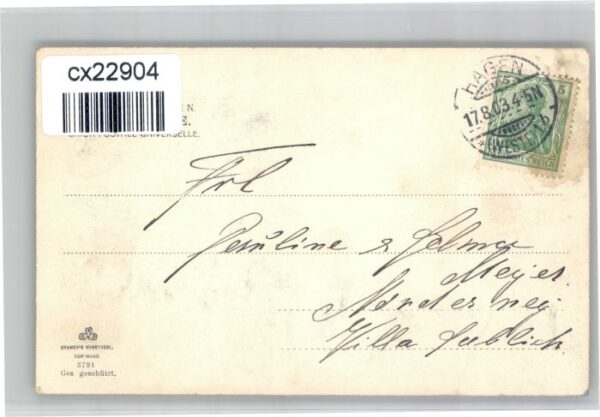 cx22904
N
E.
UNION POSTALE UNIVERSELLE.
HAGEN
17.8.03.4-5N
(WESTF.) 1b
5
REICH
Frl
Pauline & Selma
Meyer
Norderney
Villa
KRAMER'S KUNSTVERL.
DORTMUND
3791
Ges. geschützt.